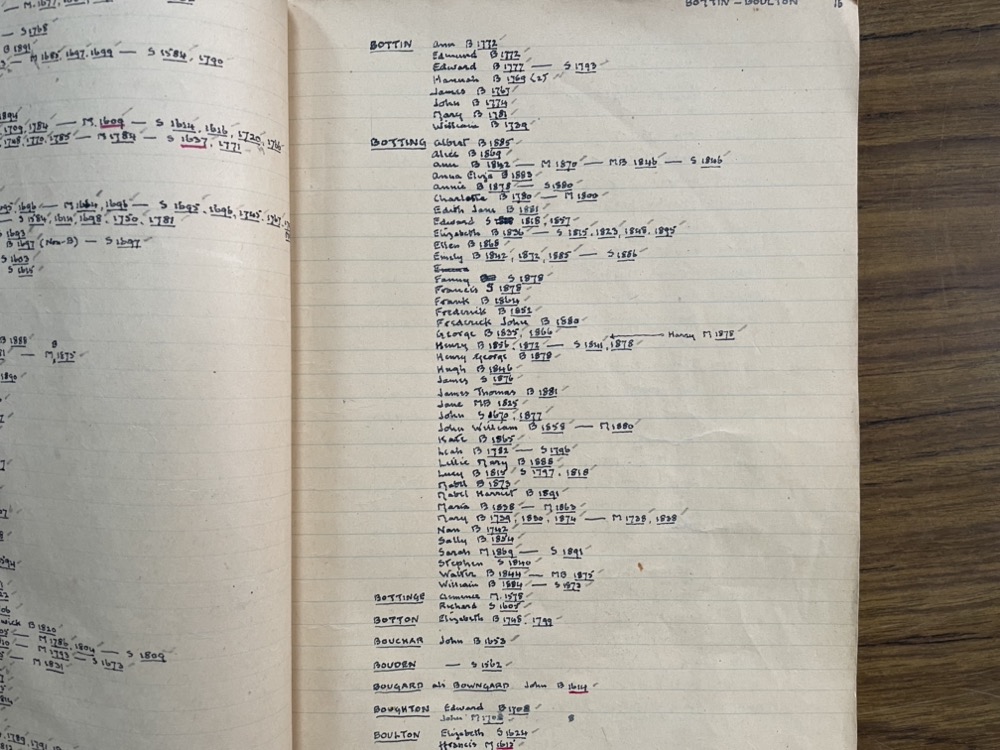 M. 1677
S 1768
B 1891
M 1683, 1697, 1699 — S 1584, 1790
1894
1709, 1784 — M. 1609 — S 1614, 1616, 1720, 1766
1748, 1770, 1785 — M 1784 — S 1637, 1771
1696 — S 1695, 1696, 1745, 1767
S 1584, 1614, 1698, 1750, 1781
S 1693
B 1697 (Non-B) — S 1697
S 1603
S 1615
B 1888
M. 1875
1890
B 1820
M 1786, 1804 — S 1809
M 1793 — S 1673
M 1831
1789, 1791
BOTTIN – BOULTON 15
BOTTIN Ann B 1772
Edmund B 1772
Edward B 1777 — S 1793
Hannah B 1769 (2)
James B 1767
John B 1774
Mary B 1781
William B 1739
BOTTING Albert B 1885
Alice B 1869
Ann B 1842 — M 1870 — MB 1846 — S 1846
Anna Eliza B 1883
Annie B 1878 — S 1880
Charlotte B 1780 — M 1800
Edith Jane B 1881
Edward S 1818, 1857
Elizabeth B 1836 — S 1815, 1823, 1848, 1895
Ellen B 1868
Emily B 1842, 1872, 1885 — S 1886
Fanny S 1878
Francis S 1878
Frank B 1864
Frederick B 1852
Frederick John B 1880
George B 1835, 1866 Harry M 1878
Henry B 1856, 1872 — S 1841, 1878
Henry George B 1878
Hugh B 1846
James S 1876
James Thomas B 1881
Jane MB 1825
John S 1670, 1877
John William B 1858 — M 1880
Kate B 1865
Leah B 1782 — S 1796
Lillie Mary B 1888
Lucy B 1815 S 1797, 1818
Mabel B 1873
Mabel Harriet B 1891
Maria B 1838 — M 1863
Mary B 1739, 1830, 1874 — M 1738, 1838
Nan B 1742
Sally B 1834
Sarah M 1869 — S 1891
Stephen S 1840
Walter B 1844 — MB 1875
William B 1884 — S 1873
BOTTINGE Clemence M. 1578
Richard S 1605
BOTTON Elizabeth B 1748, 1799
BOUCHAR John B 1653
BOUDEN — S 1562
BOUGARD als BOWNGARD John B 1614
BOUGHTON Edward B 1708
John M 1708
BOULTON Elizabeth S 1624
Francis M 1612